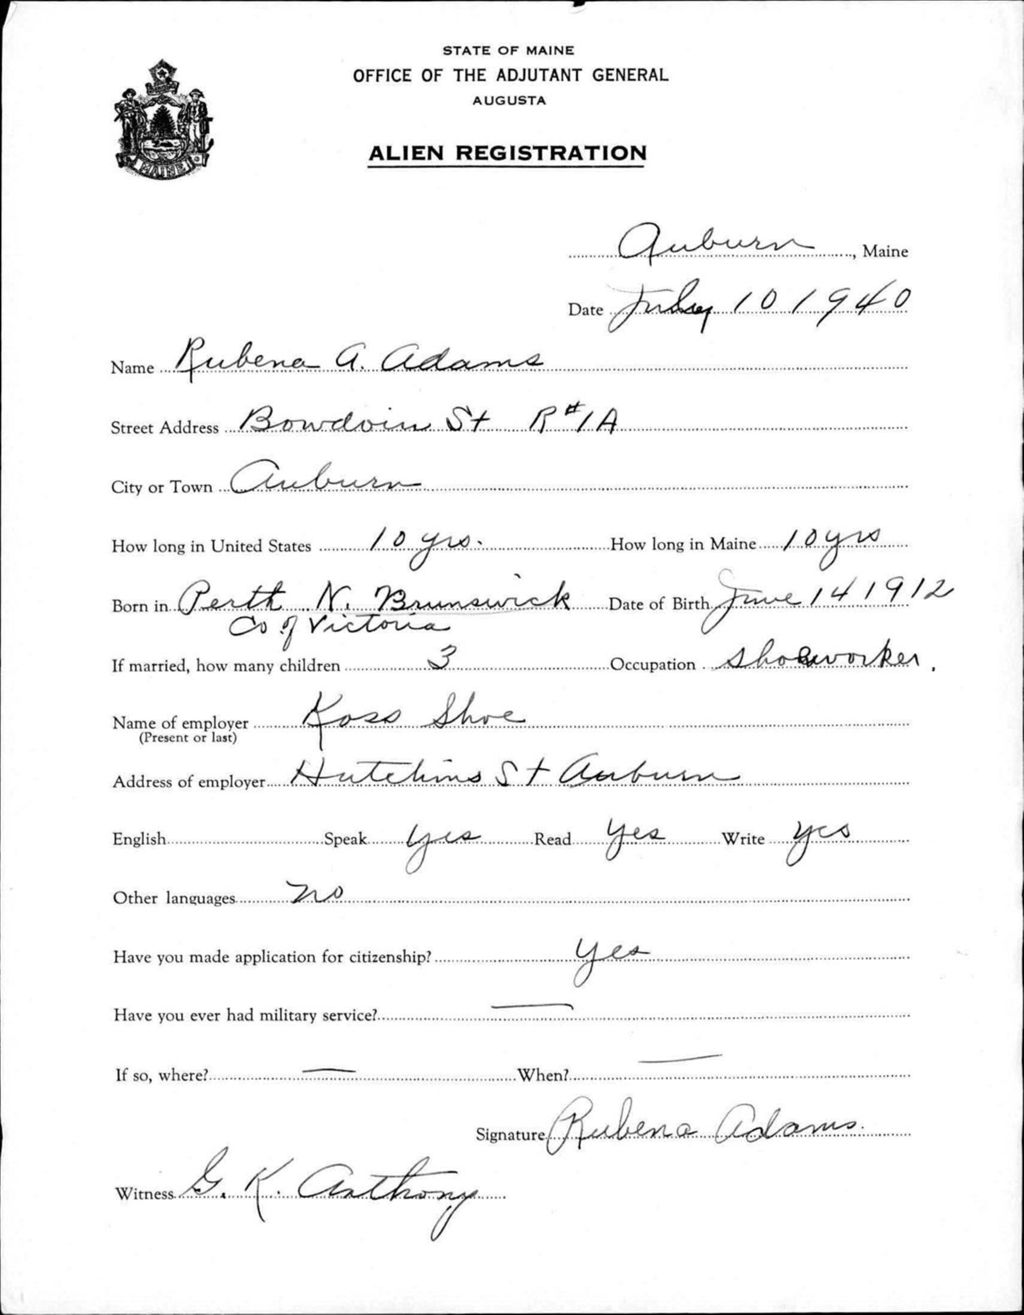 STATE OF MAINE
OFFICE OF THE ADJUTANT GENERAL
AUGUSTA
ALIEN REGISTRATION
MAINE
Auburn, Maine
Date July 10 1940
Name Rubena A. Adams
Street Address Bowdoin St R#1A
City or Town Auburn
How long in United States 10 yrs. How long in Maine 10 yrs
Born in Perth N. Brunswick Date of Birth June 14 1912
Co of Victoria
If married, how many children 3 Occupation Shoeworker.
Name of employer Koss Shoe
(Present or last)
Address of employer Hutchins St Auburn
English Speak yes Read yes Write yes
Other languages no
Have you made application for citizenship? yes
Have you ever had military service? —
If so, where? — When? —
Signature Rubena Adams.
Witness G. K. Anthony